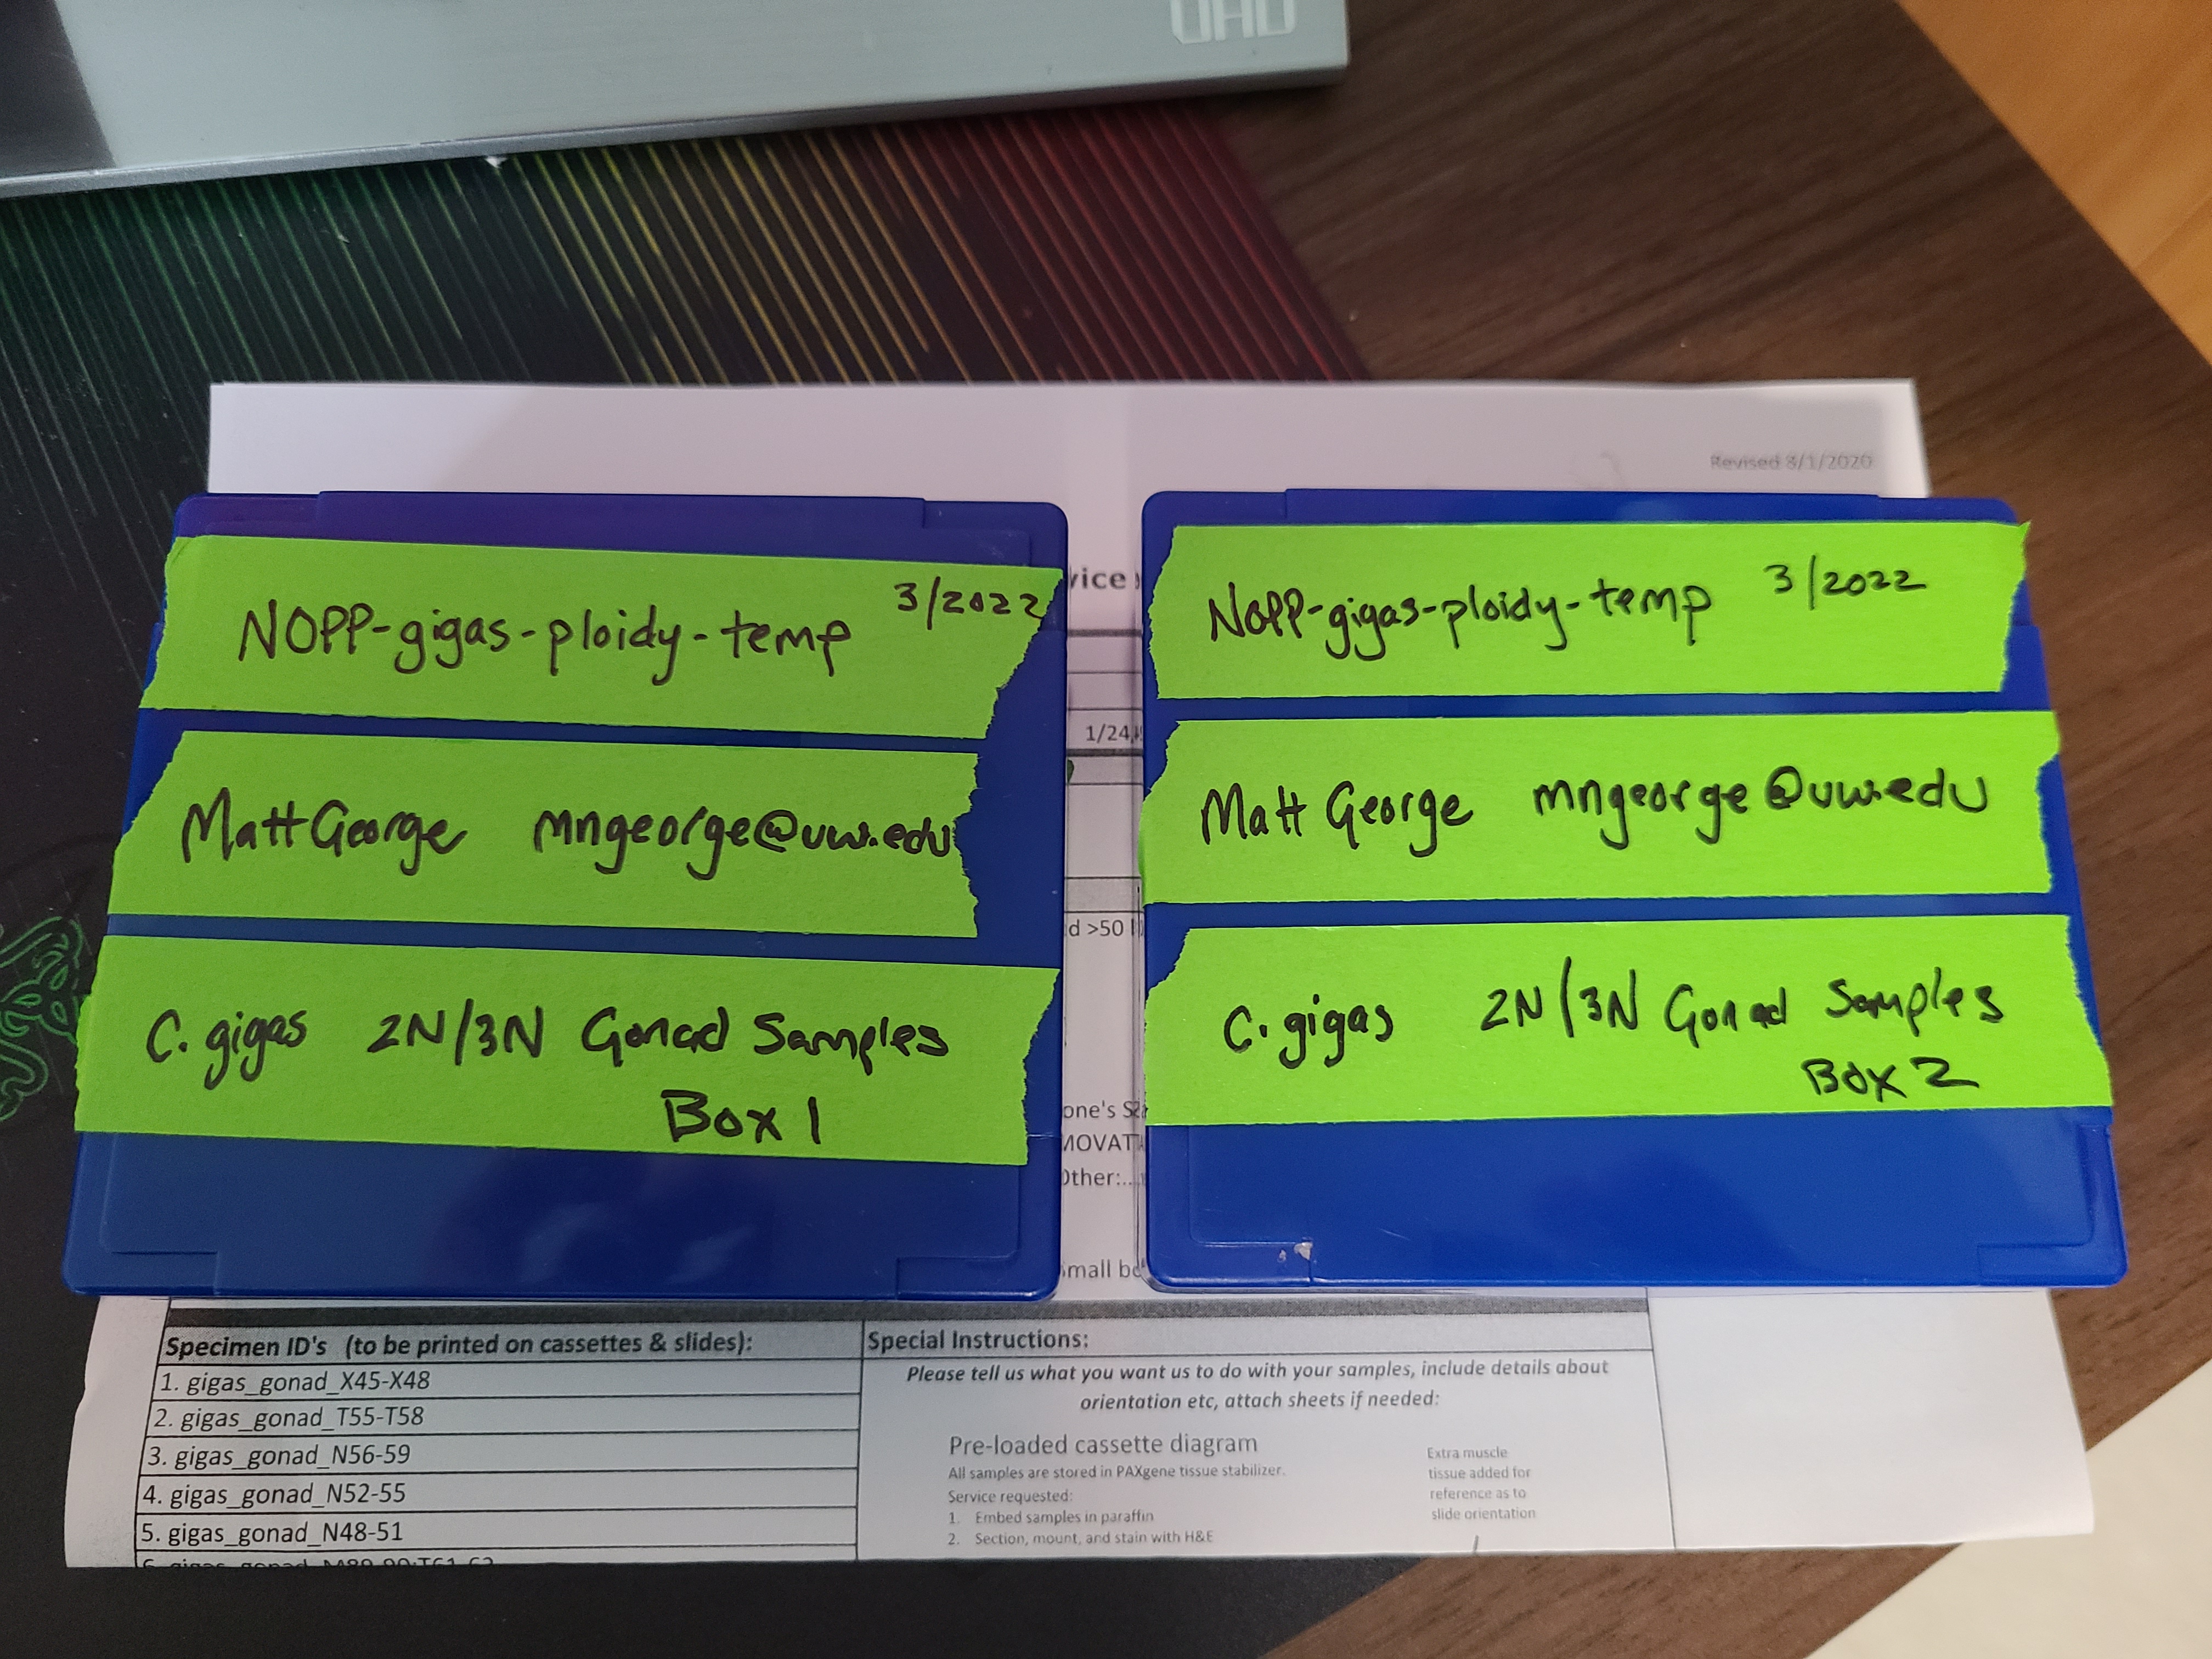 Revised 8/1/2020
NOPP-gigas-ploidy-temp 3/2022
Matt George mngeorge@uw.edu
C. gigas 2N/3N Gonad Samples
Box 1
NOPP-gigas-ploidy-temp 3/2022
Matt George mngeorge@uw.edu
C. gigas 2N/3N Gonad Samples
Box 2
vice
1/24
d >50
one's
Other:...
mall
Specimen ID's (to be printed on cassettes & slides):
1. gigas_gonad_X45-X48
2. gigas_gonad_T55-T58
3. gigas_gonad_N56-59
4. gigas_gonad_N52-55
5. gigas_gonad_N48-51
Special Instructions:
Please tell us what you want us to do with your samples, include details about
orientation etc, attach sheets if needed:
Pre-loaded cassette diagram
All samples are stored in PAXgene tissue stabilizer.
Service requested:
1. Embed samples in paraffin
2. Section, mount, and stain with H&E
Extra muscle
tissue added for
reference as to
slide orientation